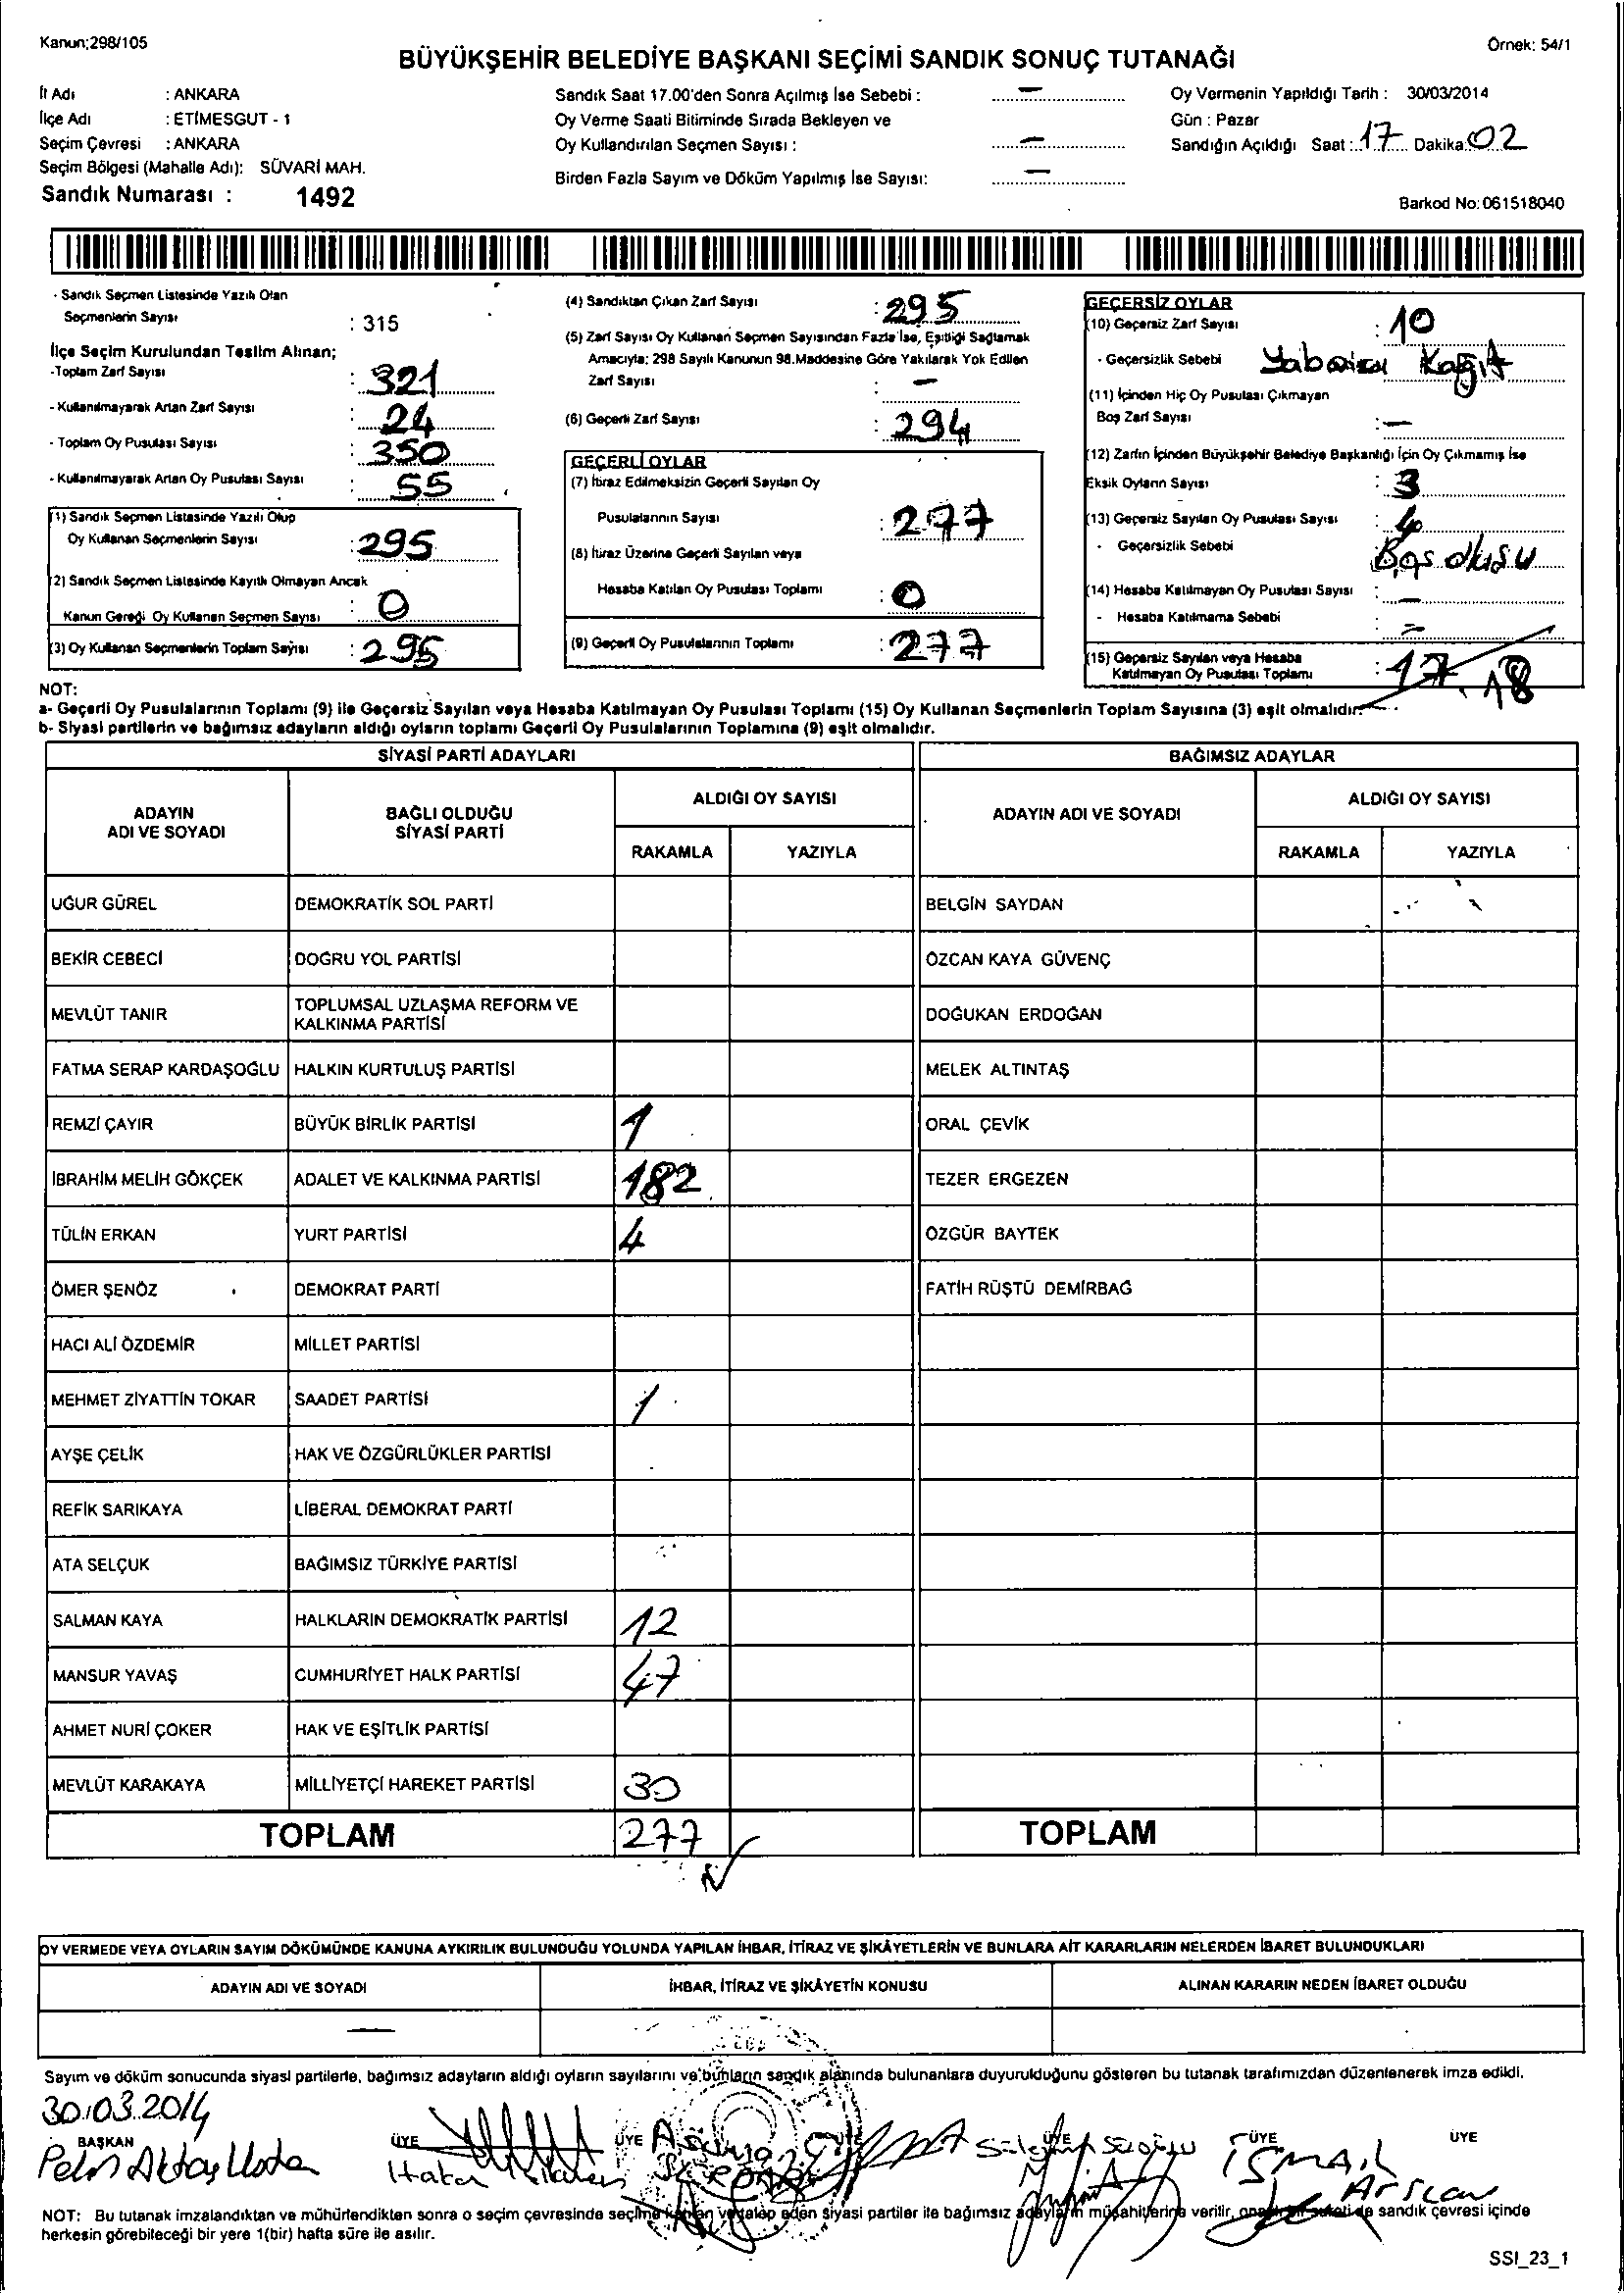 Kanun;298/105
Örnek: 54/1
BÜYÜKŞEHİR BELEDİYE BAŞKANI SEÇİMİ SANDIK SONUÇ TUTANAĞI
İl Adı : ANKARA
İlçe Adı : ETİMESGUT - 1
Seçim Çevresi : ANKARA
Seçim Bölgesi (Mahalle Adı): SÜVARİ MAH.
Sandık Numarası : 1492
Sandık Saat 17.00'den Sonra Açılmış İse Sebebi : —
Oy Verme Saati Bitiminde Sırada Bekleyen ve
Oy Kullandırılan Seçmen Sayısı : —
Birden Fazla Sayım ve Döküm Yapılmış İse Sayısı: —
Oy Vermenin Yapıldığı Tarih : 30/03/2014
Gün : Pazar
Sandığın Açıldığı Saat : 17 Dakika: 02
Barkod No:061518040
- Sandık Seçmen Listesinde Yazılı Olan
Seçmenlerin Sayısı : 315
İlçe Seçim Kurulundan Teslim Alınan;
-Toplam Zarf Sayısı : 321
- Kullanılmayarak Artan Zarf Sayısı : 24
- Toplam Oy Pusulası Sayısı : 350
- Kullanılmayarak Artan Oy Pusulası Sayısı : 55
(1) Sandık Seçmen Listesinde Yazılı Olup
Oy Kullanan Seçmenlerin Sayısı : 295
(2) Sandık Seçmen Listesinde Kayıtlı Olmayan Ancak
Kanun Gereği Oy Kullanan Seçmen Sayısı : 0
(3) Oy Kullanan Seçmenlerin Toplam Sayısı : 295
(4) Sandıktan Çıkan Zarf Sayısı : 295
(5) Zarf Sayısı Oy Kullanan Seçmen Sayısından Fazla İse, Eşitliği Sağlamak
Amacıyla; 298 Sayılı Kanunun 98.Maddesine Göre Yakılarak Yok Edilen
Zarf Sayısı : —
(6) Geçerli Zarf Sayısı : 294
GEÇERLİ OYLAR
(7) İtiraz Edilmeksizin Geçerli Sayılan Oy
Pusulalarının Sayısı : 277
(8) İtiraz Üzerine Geçerli Sayılan veya
Hesaba Katılan Oy Pusulası Toplamı : 0
(9) Geçerli Oy Pusulalarının Toplamı : 277
GEÇERSİZ OYLAR
(10) Geçersiz Zarf Sayısı : 10
- Geçersizlik Sebebi Yabancı Kağıt
(11) İçinden Hiç Oy Pusulası Çıkmayan
Boş Zarf Sayısı : —
(12) Zarfın İçinden Büyükşehir Belediye Başkanlığı İçin Oy Çıkmamış İse
Eksik Oyların Sayısı : 3
(13) Geçersiz Sayılan Oy Pusulası Sayısı : 4
- Geçersizlik Sebebi Boş oluşu
(14) Hesaba Katılmayan Oy Pusulası Sayısı : —
- Hesaba Katılmama Sebebi : —
(15) Geçersiz Sayılan veya Hesaba
Katılmayan Oy Pusulası Toplamı : 17 18
NOT:
a- Geçerli Oy Pusulalarının Toplamı (9) ile Geçersiz Sayılan veya Hesaba Katılmayan Oy Pusulası Toplamı (15) Oy Kullanan Seçmenlerin Toplam Sayısına (3) eşit olmalıdır.
b- Siyasi partilerin ve bağımsız adayların aldığı oyların toplamı Geçerli Oy Pusulalarının Toplamına (9) eşit olmalıdır.
SİYASİ PARTİ ADAYLARI
BAĞIMSIZ ADAYLAR
ADAYIN ADI VE SOYADI
BAĞLI OLDUĞU SİYASİ PARTİ
ALDIĞI OY SAYISI
RAKAMLA YAZIYLA
ADAYIN ADI VE SOYADI
ALDIĞI OY SAYISI
RAKAMLA YAZIYLA
UĞUR GÜREL DEMOKRATİK SOL PARTİ BELGİN SAYDAN
BEKİR CEBECİ DOĞRU YOL PARTİSİ ÖZCAN KAYA GÜVENÇ
MEVLÜT TANIR TOPLUMSAL UZLAŞMA REFORM VE KALKINMA PARTİSİ DOĞUKAN ERDOĞAN
FATMA SERAP KARDAŞOĞLU HALKIN KURTULUŞ PARTİSİ MELEK ALTINTAŞ
REMZİ ÇAYIR BÜYÜK BİRLİK PARTİSİ 1 ORAL ÇEVİK
İBRAHİM MELİH GÖKÇEK ADALET VE KALKINMA PARTİSİ 182 TEZER ERGEZEN
TÜLİN ERKAN YURT PARTİSİ 4 ÖZGÜR BAYTEK
ÖMER ŞENÖZ DEMOKRAT PARTİ FATİH RÜŞTÜ DEMİRBAĞ
HACI ALİ ÖZDEMİR MİLLET PARTİSİ
MEHMET ZİYATTİN TOKAR SAADET PARTİSİ 1
AYŞE ÇELİK HAK VE ÖZGÜRLÜKLER PARTİSİ
REFİK SARIKAYA LİBERAL DEMOKRAT PARTİ
ATA SELÇUK BAĞIMSIZ TÜRKİYE PARTİSİ
SALMAN KAYA HALKLARIN DEMOKRATİK PARTİSİ 12
MANSUR YAVAŞ CUMHURİYET HALK PARTİSİ 47
AHMET NURİ ÇOKER HAK VE EŞİTLİK PARTİSİ
MEVLÜT KARAKAYA MİLLİYETÇİ HAREKET PARTİSİ 30
TOPLAM 277 TOPLAM
OY VERMEDE VEYA OYLARIN SAYIM DÖKÜMÜNDE KANUNA AYKIRILIK BULUNDUĞU YOLUNDA YAPILAN İHBAR, İTİRAZ VE ŞİKÂYETLERİN VE BUNLARA AİT KARARLARIN NELERDEN İBARET BULUNDUKLARI
ADAYIN ADI VE SOYADI İHBAR, İTİRAZ VE ŞİKÂYETİN KONUSU ALINAN KARARIN NEDEN İBARET OLDUĞU
—
Sayım ve döküm sonucunda siyasi partilerle, bağımsız adayların aldığı oyların sayılarını ve bunların sandık alanında bulunanlara duyurulduğunu gösteren bu tutanak tarafımızdan düzenlenerek imza edildi.
30.03.2014
BAŞKAN ÜYE ÜYE ÜYE ÜYE ÜYE ÜYE
Pelin Aktaş Hakan İSMAİL
Arscan
NOT: Bu tutanak imzalandıktan ve mühürlendikten sonra o seçim çevresinde seçime katılan ve talep eden siyasi partiler ile bağımsız adayların müşahitlerine verilir, onaylı bir sureti de sandık çevresi içinde
herkesin görebileceği bir yere 1(bir) hafta süre ile asılır.
SSI_23_1